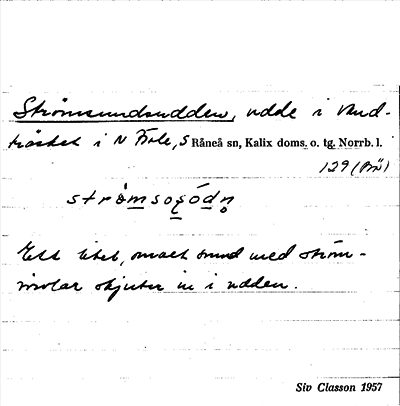 Strömsundsudden, udde i Vnd-
träsket i N Böle, S Råneå sn, Kalix doms. o. tg. Norrb. l.
129 (Brä)
Ett litet, smalt sund med ström-
virvlar skjuter in i udden.
Siv Classon 1957